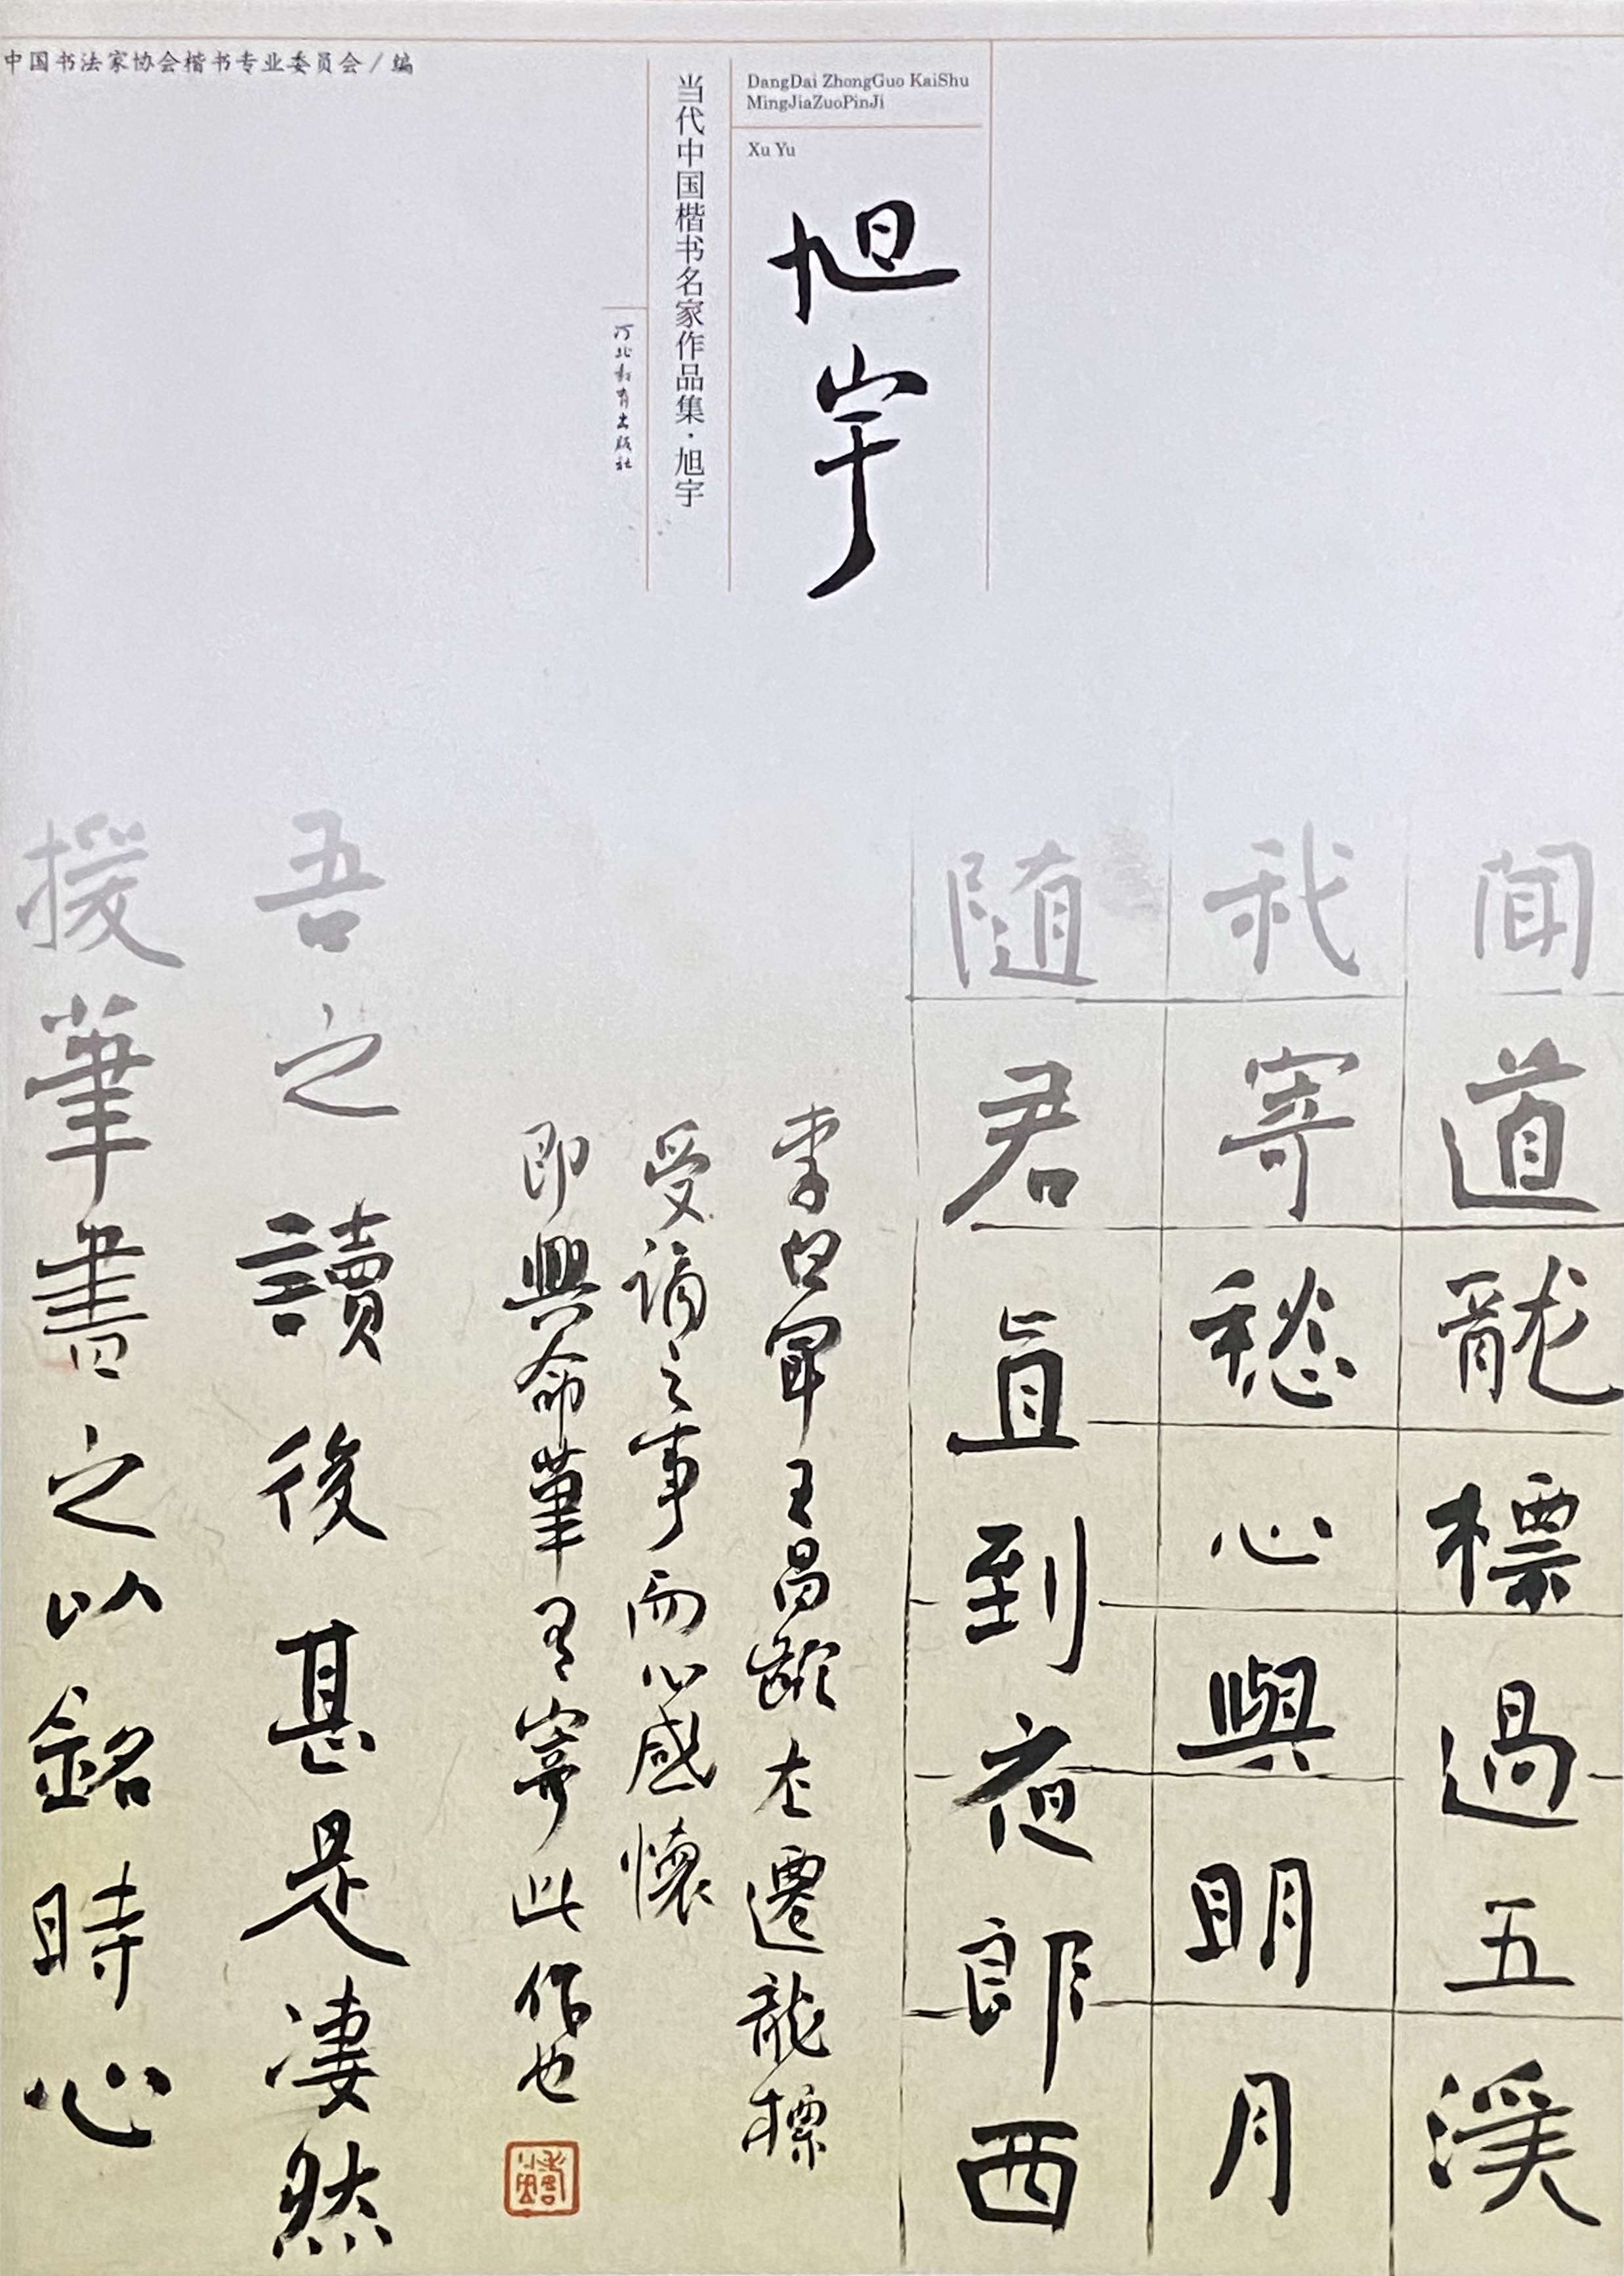 中国书法家协会楷书专业委员会／编
DangDai ZhongGuo KaiShu
MingJiaZuoPinJi
Xu Yu
旭宇
当代中国楷书名家作品集·旭宇
河北教育出版社
闻道龍標過五溪
我寄愁心與明月
随君直到夜郎西
李白聞王昌齡左遷龍標
受谪之事而心感懷
即興命筆有寄此作也
吾之讀後甚是凄然
援筆書之以銘時心